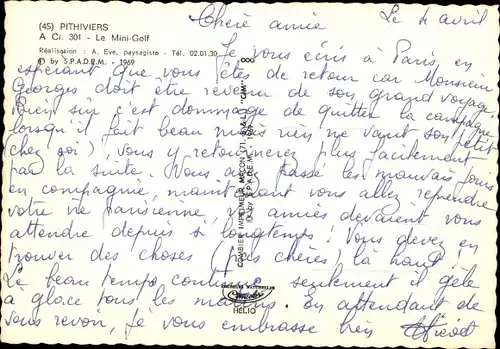 (45) PITHIVIERS
A Ci. 301 - Le Mini-Golf
Réalisation : A. Eve, paysagiste - Tél. 02.01.30
© by S.P.A.D.E.M. - 1969
Le 4 avril
Chère amie
Je vous écris à Paris en
espérant que vous êtes de retour car Monsieur
Georges doit être revenu de son grand voyage.
Bien sûr c'est dommage de quitter la campagne
lorsqu'il fait beau mais rien ne vaut son petit
chez soi), vous y retournerez plus facilement
par la suite. Vous avez passé les mauvais jours
en compagnie, maintenant vous allez reprendre
votre vie parisienne, vos amies devaient vous
attendre depuis si longtemps. Vous devez en
trouver des choses (pas chères) là haut !
Le beau temps seulement il gèle
à glace tous les matins. En attendant de
vous revoir, je vous embrasse bien
COMBIER IMPRIMEUR MACON (71. S.-&-L.) "CIM"
© by S.P.A.D.E.M.
COULEURS NATURELLES
Combier
HELIO